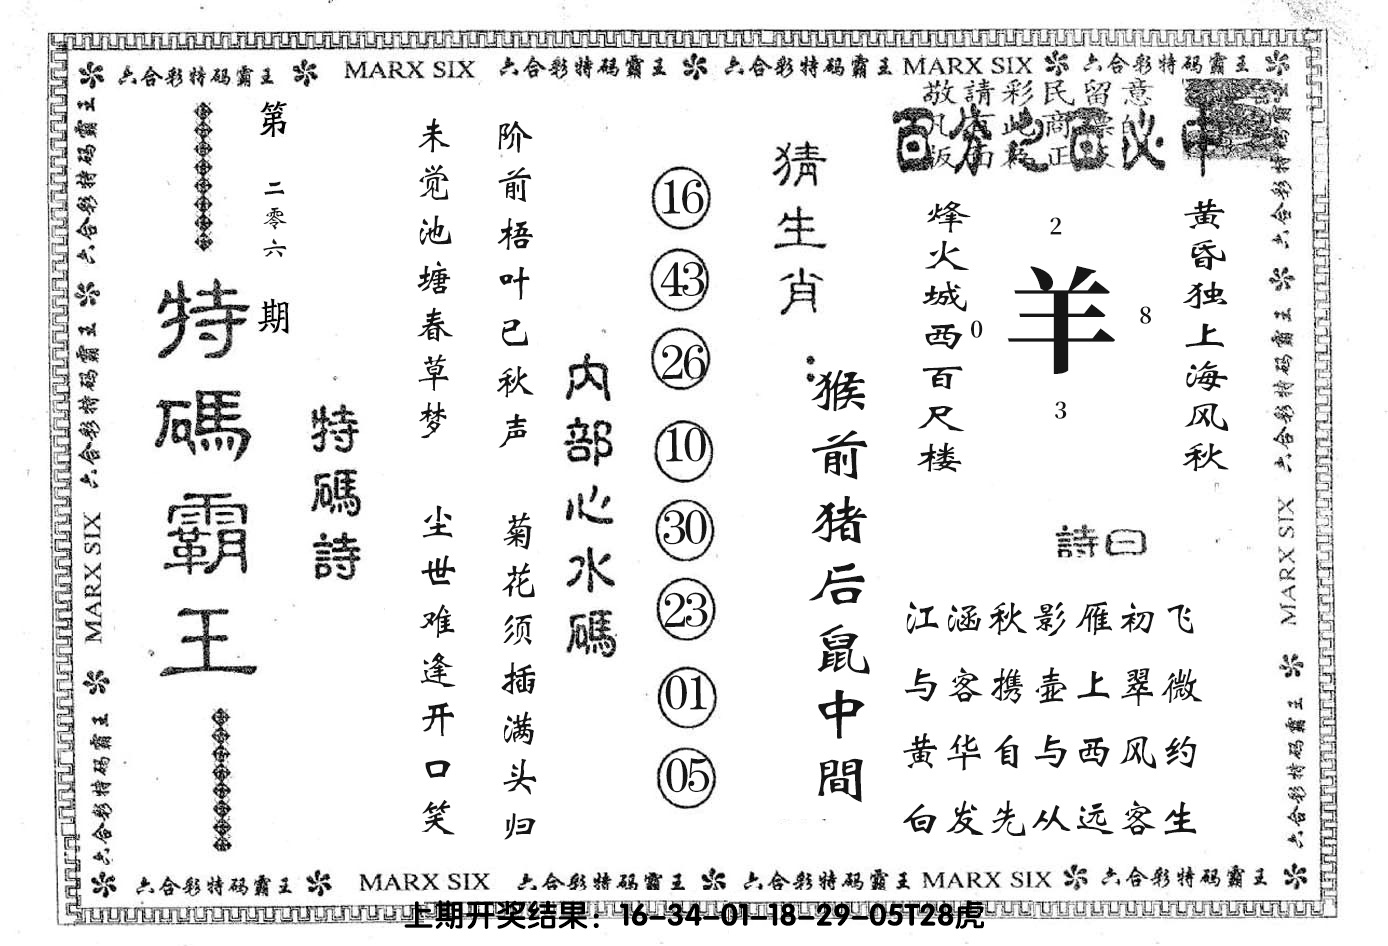 六合彩特码霸王 MARX SIX 六合彩特码霸王 六合彩特码霸王 MARX SIX 六合彩特码霸王
敬請彩民留意
黄昏独上海风秋
2
0
羊
8
3
烽火城西百尺楼
詩曰
江涵秋影雁初飞
与客携壶上翠微
黄华自与西风约
白发先从远客生
猜生肖:
猴前猪后鼠中間
16
43
26
10
30
23
01
05
内部心水碼
阶前梧叶已秋声
菊花须插满头归
未觉池塘春草梦
尘世难逢开口笑
特碼詩
第二零六期
特碼霸王
六合彩特码霸王 六合彩特码霸王 MARX SIX 六合彩特码霸王
六合彩特码霸王 六合彩特码霸王 MARX SIX 六合彩特码霸王
六合彩特码霸王 MARX SIX 六合彩特码霸王 六合彩特码霸王 MARX SIX 六合彩特码霸王
上期开奖结果：16-34-01-18-29-05T28虎